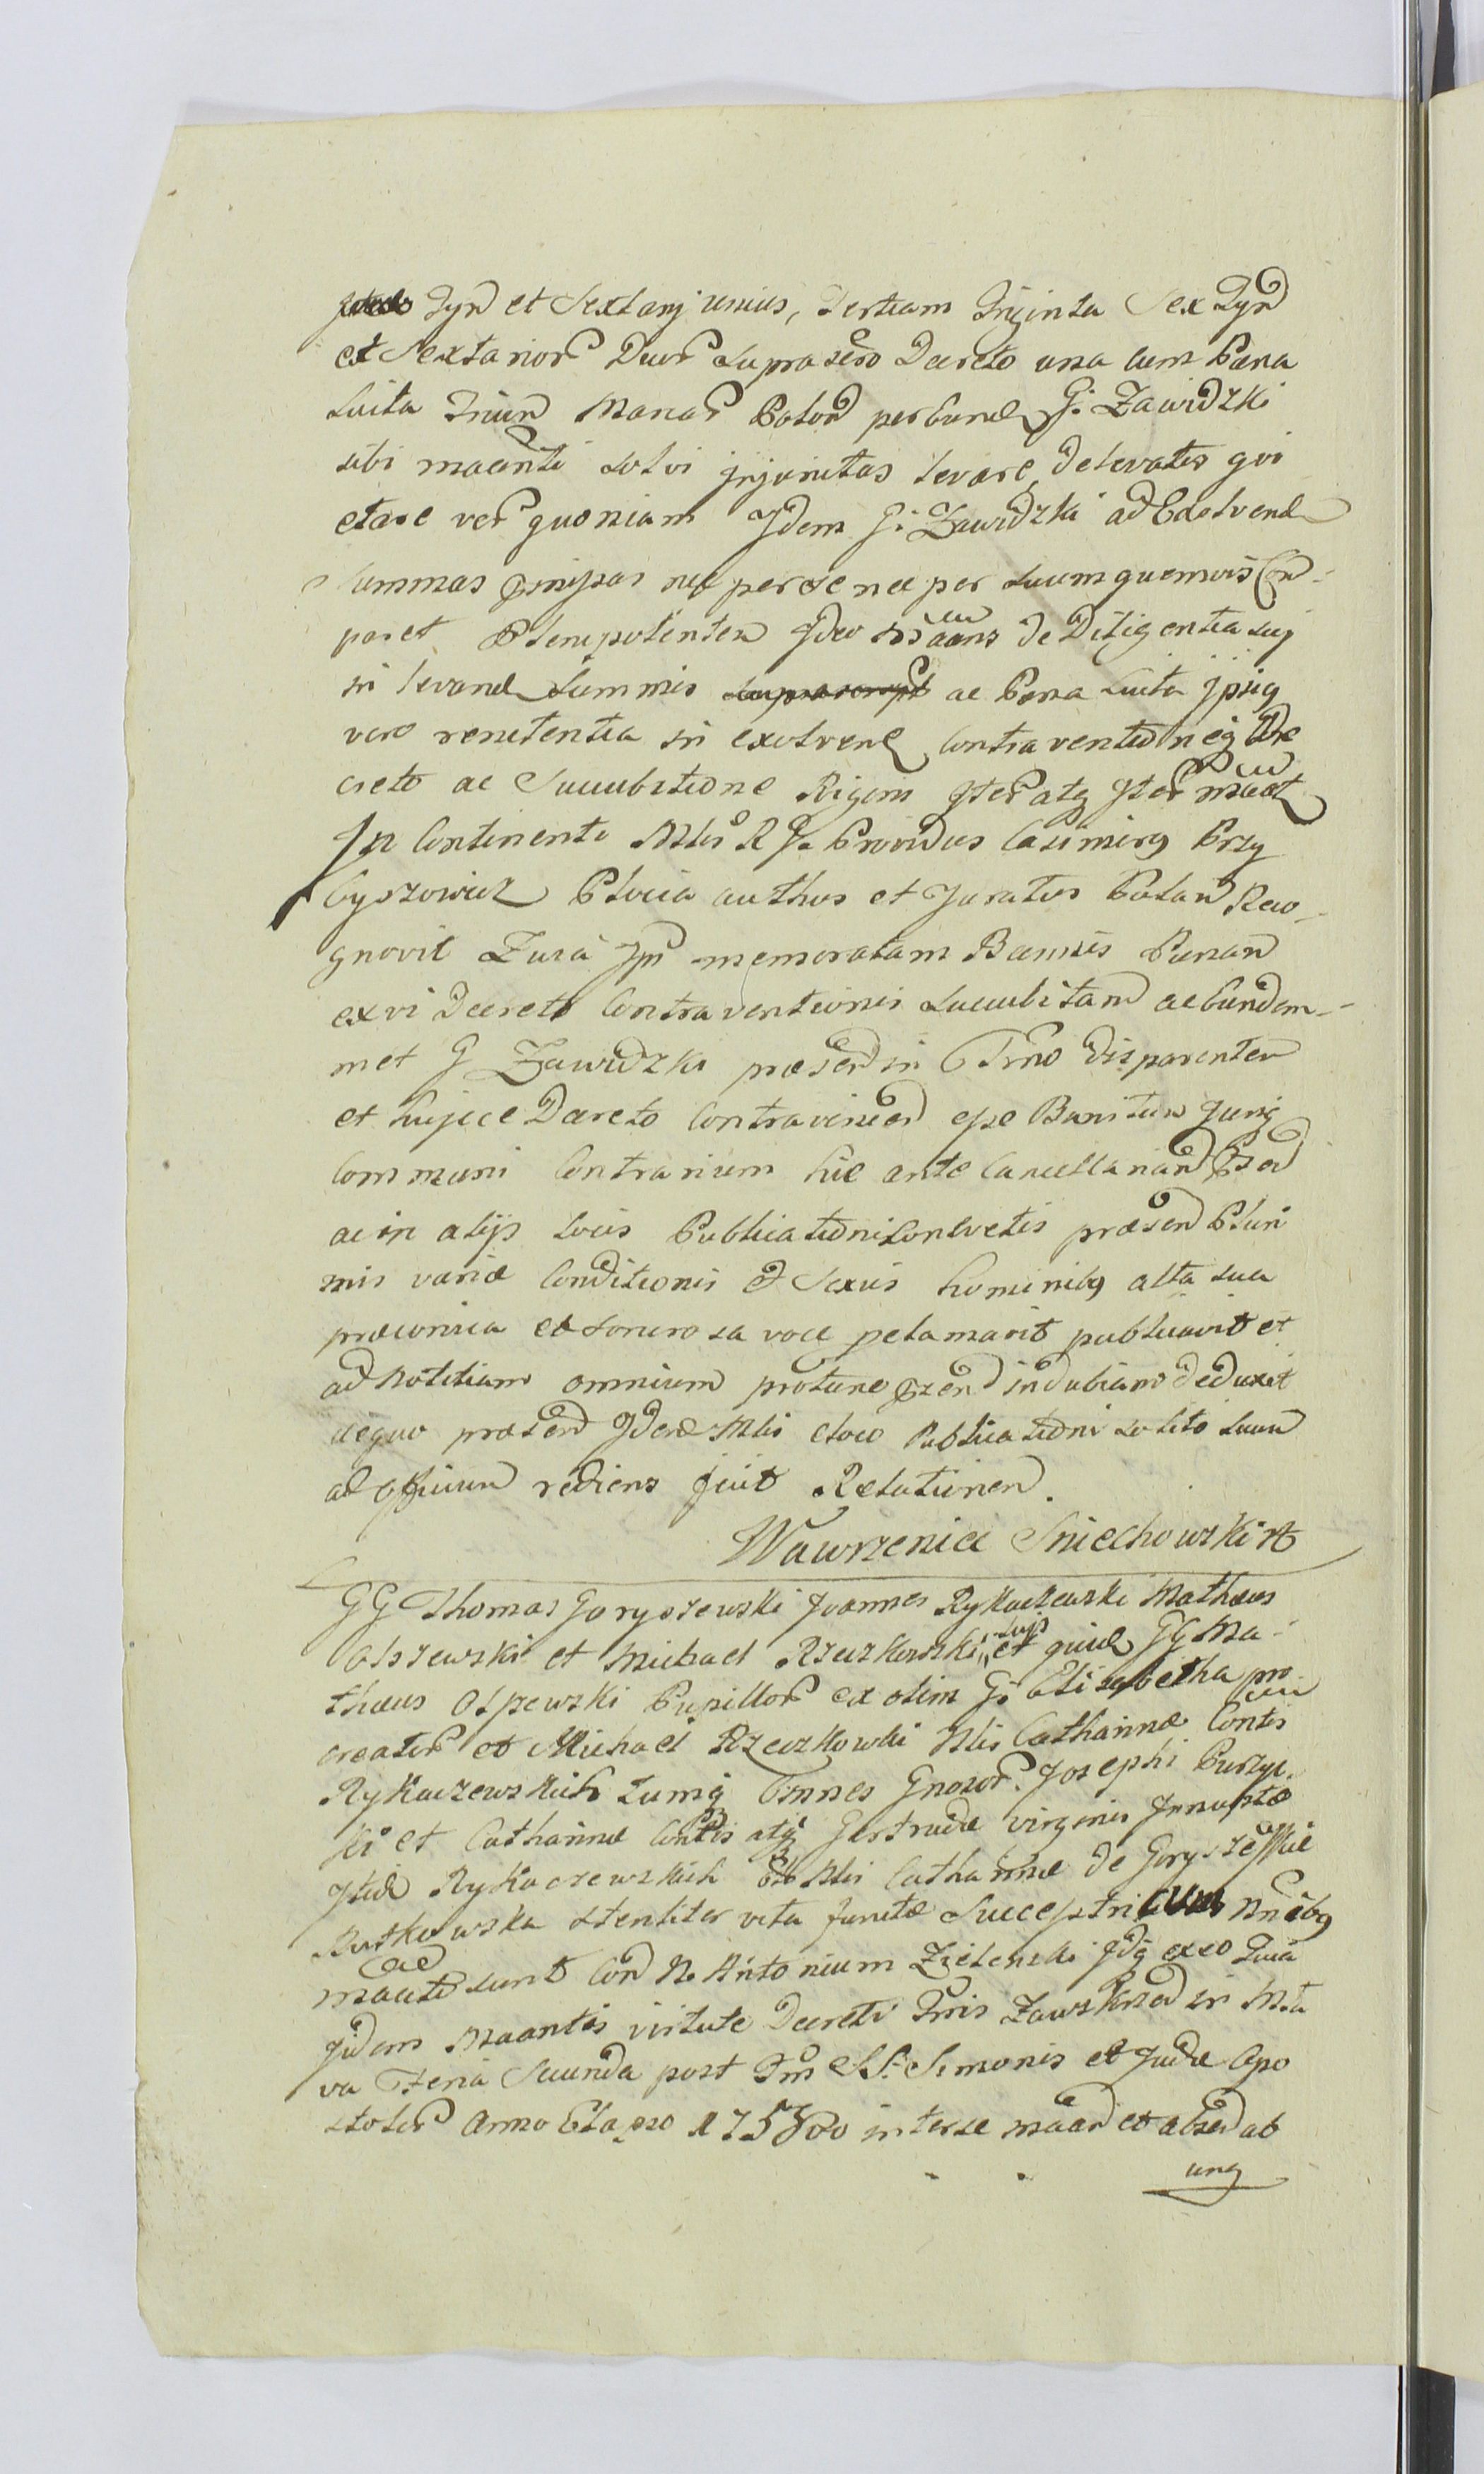 Tyn et Sextarij unius, Tertiam Triginta Sex Tyn
et Sextarior Duor Suprascro Decreto una cum Paena
Luita Trium Marcar Polon per eund G. Zawidzki
sibi maanti solvi injunctas levare, delevatis qui
etare ver quoniam Idem G. Zawidzki ad Exolvend
summas pmissas nec per se nec per suum quemvis Com-
paret Plenipotenten Ideo maans de Diligentia sui
in levand Summis ac Poena Luita ipsiq
vero renitentia in exolvend Contraventioneq De
creto ac Succubitione Rigem Iter atq Iter maat
In Continenti Mtis R G. Providus Casimirq Przy
byszowicz Plocia authus et Juratus Palam Reco-
gnovit Quia Ipse memoratam Bannis Paenam
ex vi Decreti Contraventionis Succubitam ac eundem-
met G Zawidzki praesend in Trno disparenten
et hujece Decreto Contravenien esse Banitum Juriq
Communi Contrarium hic ante Cancellariam
ac in alijs locis Publicationi Consvetis praesend Pluri
mis variae Conditionis et Sexus hominibq alta sua
praeconica et sonorosa voce pclamavit publicavit et
ad Notitiam omnium protunc pzen indubiam deduxit
de quo praesens Idem Mtis e loco Publicationi solito suum
ad officium rediens fecit Relationem.
Wawrzeniec Sniechowski
GG Thomas Goryszewski Joannes Rykaczewski Mathaeus
Olszewski et Michael Rzeczkowski, suis et quid GG Ma-
thaeus Olszewski Pupillor ex olim G. Elisabetha pro
creator et Michael Rzeczkowski Mtis Catharinae Contis
Rykaczewskich tumq Omnes Gnosor. Josephi Purzyc
ki et Catharinae Contis atq Gertrudae virginis Innuptae
Itid Rykaczewskich Mtis Catharinae de Goryszewskie
Rutkowska steriliter vita functae Successtricum Nnibq
maati sunt Con N. Antonium Zielenski Idq ex eo Quia
Ijdem Maantes virtute Decreti Tris Zawskrzen in Mla
va Feria Secunda post Fm SS. Simonis et Judae Apo
stolor Anno Elapso 1758vo inter se maan et absen ab
unq